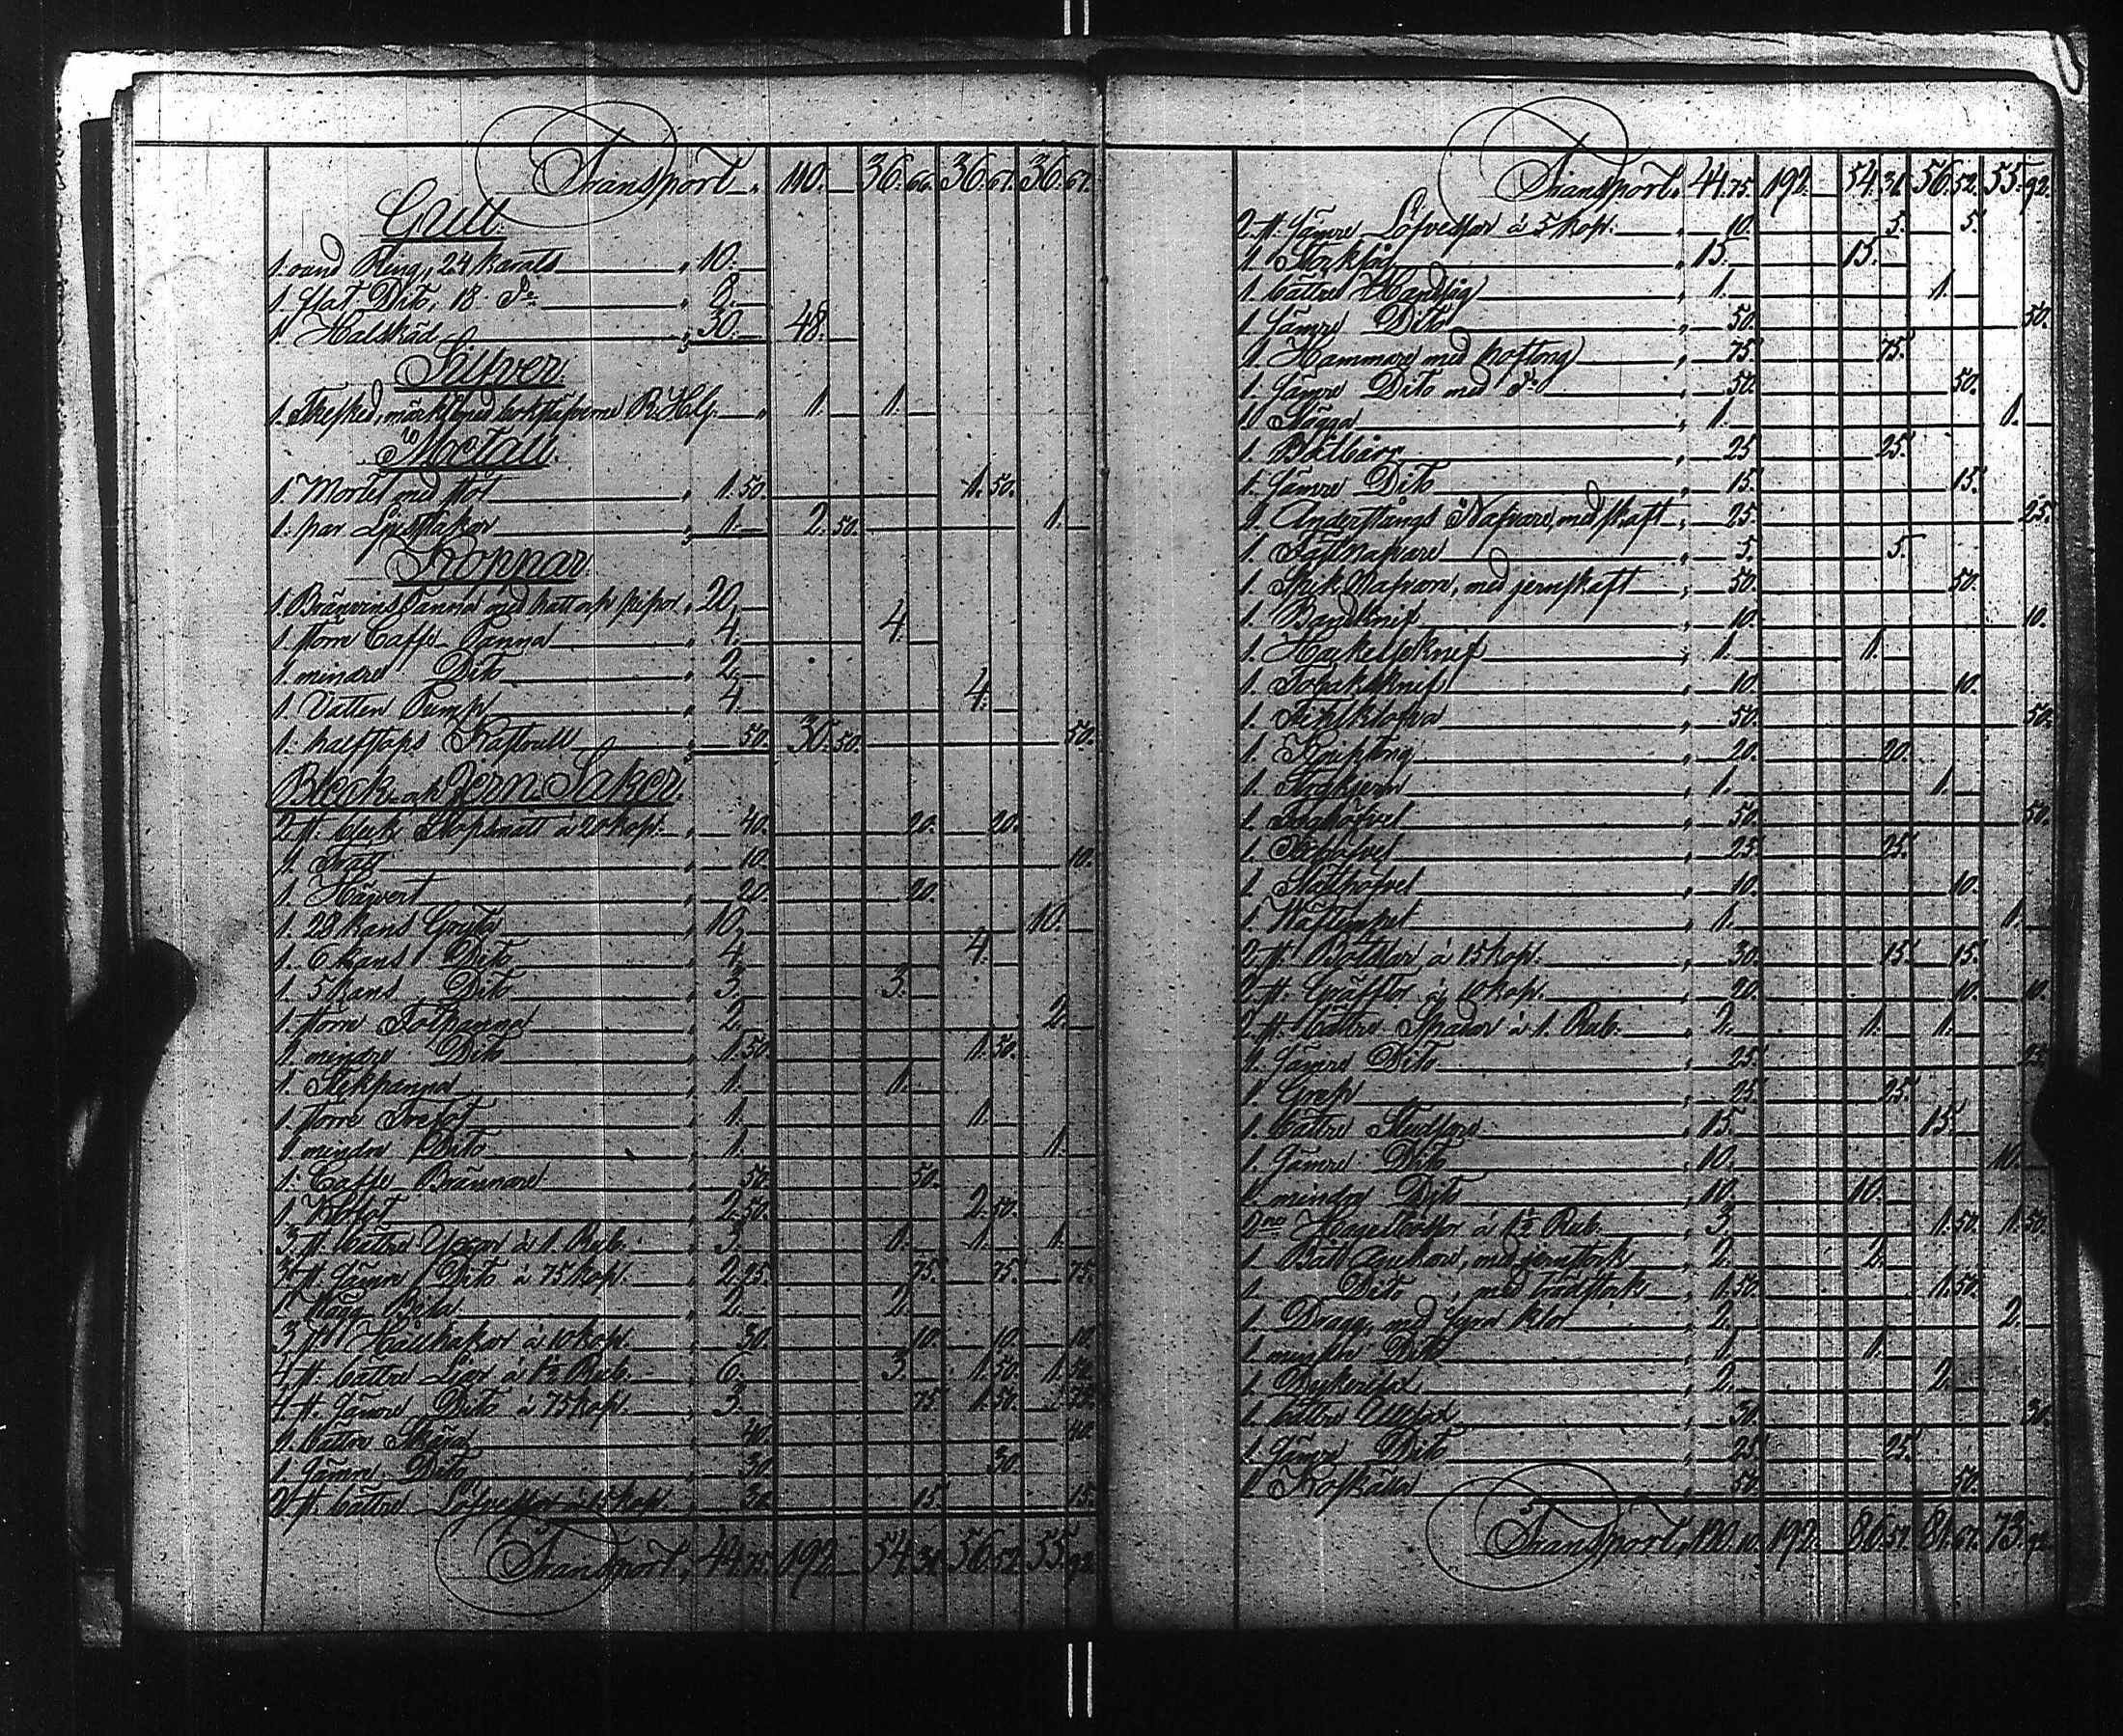 Transport „ 110. — 36. 66. 36. 67. 36. 67.
Gull.
1. rund Ring, 24 karats „ 10. —
1. flat Dito, 18. do „ 8. —
1. Halskäd „ 30. — 48. —
Silfver.
1. Thesked, märkt med bokstäfverne R. H. G. „ 1. — 1. —
Metall.
1. Mortel med stöt „ 1. 50. 1. 50.
1. par Ljusstakar „ 1. — 2. 50. 1. —
Koppar.
1. Bränvins Panna med hatt och pipor „ 20. —
1. större Caffe Panna „ 4. 4.
1. mindre Dito „ 2. —
1. Vatten Pump „ 4. 4.
1. halfstops Kastrull „ 50. 30. 50. 50.
Bleck och Jern Saker.
2. st. bleck Stopsmått à 20 kop. „ 40. 20. 20.
1. Tratt „ 10. 10.
1. Häfvert „ 20. 20.
1. 28 kans Gryta „ 10. 10. —
1. 6 kans Dito „ 4. 4.
1. 5 kans Dito „ 3. 3.
1. större Fotpanna „ 2. 2. —
1. mindre Dito „ 1. 50. 1. 50.
1. Stekpanna „ 1. 1. —
1. större Trefot „ 1. 1. —
1. mindre Dito „ 1. 1. —
1. Caffe Brännare „ 50. 50.
1. Klofot „ 2. 50. 2. 50.
3. st. bättre Yxor à 1. Rub. „ 3. 1. 1. 1.
3. st. sämre Dito à 75 kop. „ 2. 25. 75. 75. 75.
1. Bila „ 2. 2. —
3. st. Hällhakar à 10 kop. „ 30. 10. 10. 10.
4. st. bättre Liar à 1½ Rub. „ 6. 3. 1. 50. 1. 50.
4. st. sämre Dito à 75 kop. „ 3. 75. 1. 50. 75.
1. bättre Skära „ 40. 40.
1. sämre Dito „ 30. 30.
2. st. bättre Löfvessor à 15 kop. „ 30. 15. 15.
Transport, 44. 75. 192. — 54. 31. 56. 52. 55. 92.
Transport „ 44. 75. 192. — 54. 31. 56. 52. 55. 92.
2. st. sämre Löfvessor à 5 kop. „ 10. 5. 5.
1. Stocksåg „ 15. 15. —
1. bättre Handsåg „ 1. 1. —
1. sämre Dito „ 50. 50.
1. Hammare med hoftång „ 75. 75.
1. sämre Dito med do „ 50. 50.
1. Slägga „ 1. 1. —
1. Bultbårr „ 25. 25.
1. sämre Dito „ 15. 15.
1. Anderstångs Nafvare, med skaft „ 25. 25.
1. Tåttnafvare „ 5. 5.
1. Nafvare, med jernskaft „ 50. 50.
1. Bandknif „ 10. 10.
1. Hackelseknif „ 1. 1. —
1. Tobaksknif „ 10. 10.
1. Fihlklofva „ 50. 50.
1. Kniptång „ 20. 20.
1. „ 1. 1. —
1. Foghöfvel „ 50. 50.
1. „ 25. 25.
1. Slätthöfvel „ 10. 10.
1. „ 1. 1.
2. st. à 15 kop. „ 30. 15. 15.
2. st. Gräftor à 10 kop. „ 20. 10. 10.
2. st. bättre Spador à 1. Rub. „ 2. 1. 1.
1. sämre Dito „ 25. 25.
1. Grep „ 25. 25.
1. bättre „ 15. 15. —
1. sämre Dito „ 10. 10.
1. mindre Dito „ 10. 10. —
2ne à 1½ Rub. „ 3. 1. 50. 1. 50.
1. Båts Ankare, med jernstock „ 2. 2.
1. Dito, med trädstock „ 1. 50. 1. 50.
1. Dragg, med fyra klor „ 2. 2. —
1. mindre Dito „ 1. 1. —
1. „ 2. 2. —
1. bättre „ 30. 30.
1. sämre Dito „ 25. 25.
1. „ 50. 50.
Transport, 120. 10. 192. — 86. 51. 81. 67. 73. 92.